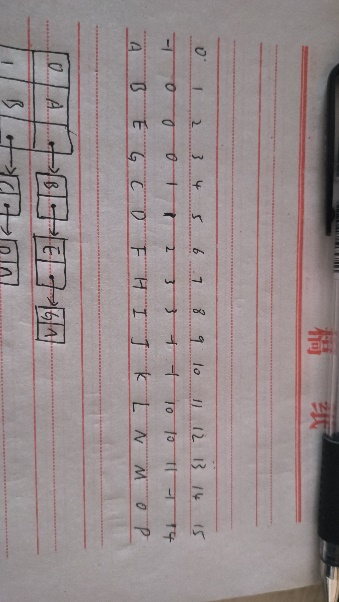 稿纸
0 1 2 3 4 5 6 7 8 9 10 11 12 13 14 15
-1 0 0 0 1 1 2 3 3 4 -1 10 10 11 -1 14
A B E G C D F H I J K L N M O P
0 A → B → E → G ∧
1 B → C → D ∧